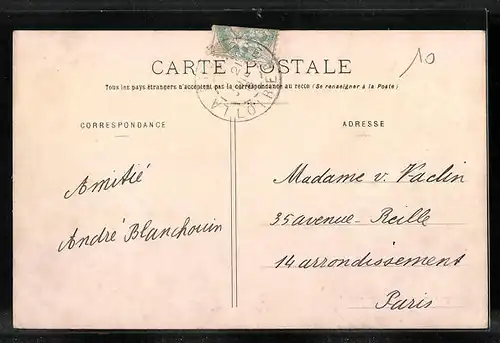 10
CARTE POSTALE
Tous les pays étrangers n'acceptent pas la correspondance au recto (Se renseigner à la Poste)
CORRESPONDANCE
ADRESSE
Amitié
André Blanchouin
Madame v. Vaclin
35 avenue-Reille
14 arrondissement
Paris